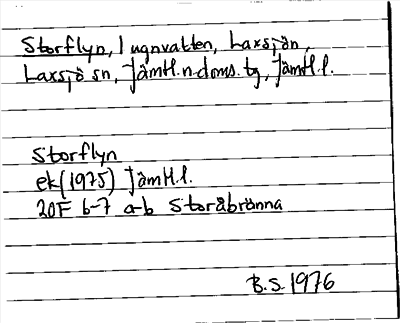 Storflyn, Lugnvatten, Laxsjön,
Laxsjö sn, Jämtl.n.doms.tg, Jämtl.l.
Storflyn
ek(1975) Jämtl.l.
20F 6-7 a-b Storåbränna
B.S. 1976